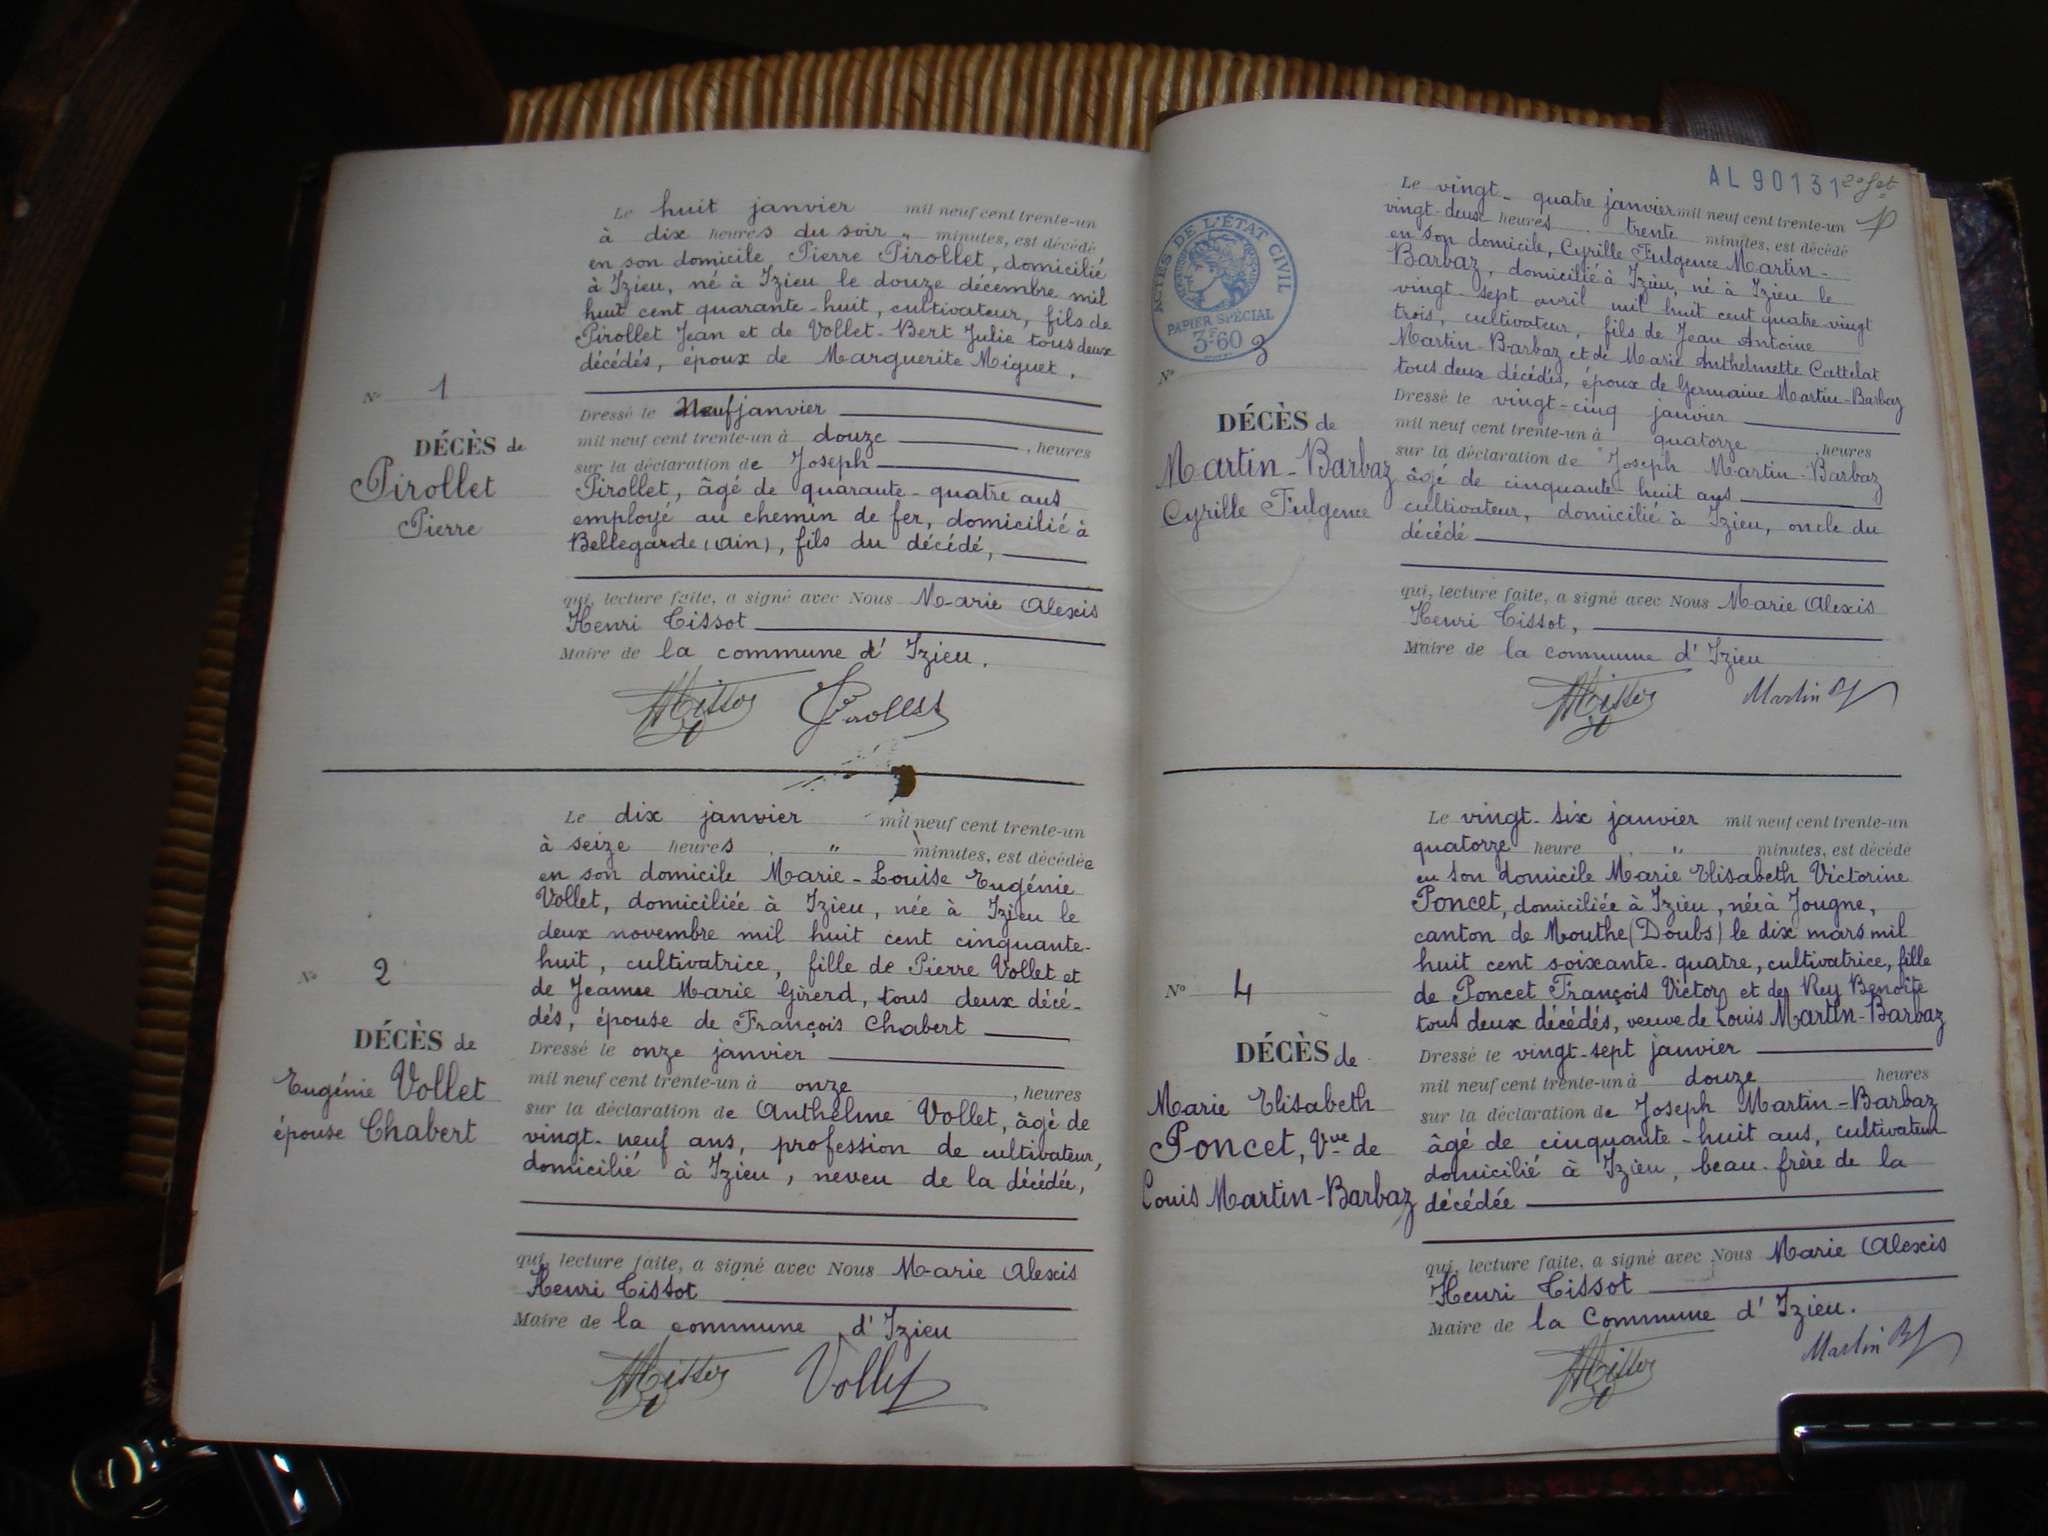 Le huit janvier mil neuf cent trente-un
à dix heures du soir " minutes, est décédé
en son domicile Pierre Pirollet, domicilié
à Izieu, né à Izieu le douze décembre mil
huit cent quarante-huit, cultivateur, fils de
Pirollet Jean et de Vollet-Bert Julie tous deux
décédés, époux de Marguerite Miguet.
N° 1
DÉCÈS de
Pirollet
Pierre
Dressé le Neuf janvier
mil neuf cent trente-un à douze, heures
sur la déclaration de Joseph
Pirollet, âgé de quarante-quatre ans
employé au chemin de fer, domicilié à
Bellegarde (Ain), fils du décédé,
qui, lecture faite, a signé avec Nous Marie Alexis
Henri Tissot
Maire de la commune d'Izieu.
HTissot Pirollet
Le dix janvier mil neuf cent trente-un
à seize heures " minutes, est décédée
en son domicile Marie-Louise Eugénie
Vollet, domiciliée à Izieu, née à Izieu le
deux novembre mil huit cent cinquante-
huit, cultivatrice, fille de Pierre Vollet et
de Jeanne Marie Girerd, tous deux décé-
dés, épouse de François Chabert
N° 2
DÉCÈS de
Eugénie Vollet
épouse Chabert
Dressé le onze janvier
mil neuf cent trente-un à onze, heures
sur la déclaration de Anthelme Vollet, âgé de
vingt-neuf ans, profession de cultivateur,
domicilié à Izieu, neveu de la décédée,
qui, lecture faite, a signé avec Nous Marie Alexis
Henri Tissot
Maire de la commune d'Izieu
HTissot Vollet
AL 90131
ACTES DE L'ÉTAT CIVIL
PAPIER SPÉCIAL
3F60
Le vingt-quatre janvier mil neuf cent trente-un
vingt-deux heures trente minutes, est décédé
en son domicile, Cyrille Fulgence Martin-
Barbaz, domicilié à Izieu, né à Izieu le
vingt-sept avril mil huit cent quatre-vingt
trois, cultivateur, fils de Jean Antoine
Martin-Barbaz et de Marie Anthelmette Cattelat
tous deux décédés, époux de Germaine Martin-Barbaz
N° 3
DÉCÈS de
Martin-Barbaz
Cyrille Fulgence
Dressé le vingt-cinq janvier
mil neuf cent trente-un à quatorze, heures
sur la déclaration de Joseph Martin-Barbaz
âgé de cinquante-huit ans
cultivateur, domicilié à Izieu, oncle du
décédé
qui, lecture faite, a signé avec Nous Marie Alexis
Henri Tissot,
Maire de la commune d'Izieu
HTissot Martin B
Le vingt-six janvier mil neuf cent trente-un
quatorze heure " minutes, est décédé
en son domicile Marie Elisabeth Victorine
Poncet, domiciliée à Izieu, née à Jougne,
canton de Mouthe (Doubs) le dix mars mil
huit cent soixante-quatre, cultivatrice, fille
de Poncet François Victor et de Rey Benoîte
tous deux décédés, veuve de Louis Martin-Barbaz
N° 4
DÉCÈS de
Marie Elisabeth
Poncet, Vve de
Louis Martin-Barbaz
Dressé le vingt-sept janvier
mil neuf cent trente-un à douze heures
sur la déclaration de Joseph Martin-Barbaz
âgé de cinquante-huit ans, cultivateur
domicilié à Izieu, beau-frère de la
décédée
qui, lecture faite, a signé avec Nous Marie Alexis
Henri Tissot
Maire de la Commune d'Izieu.
HTissot Martin B